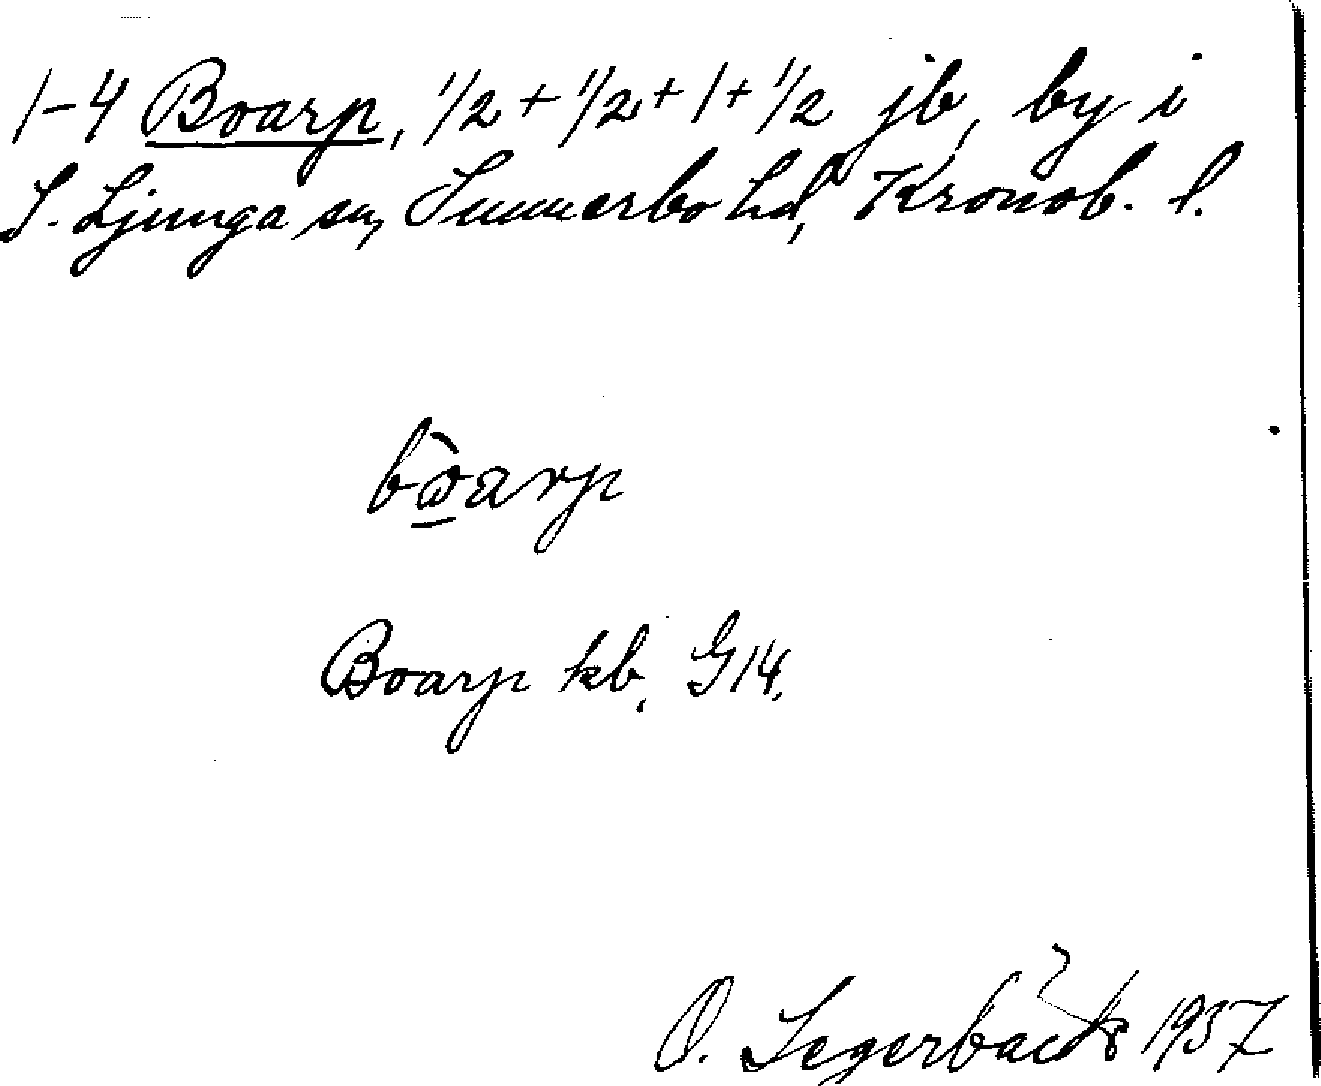 1-4 Boarp, 1/2 + 1/2 + 1 + 1/2 jb, by i
S. Ljunga sn, Sunnerbo hd, Kronob. l.
boarp
Boarp kb. G14.
O. Segerbäck 1937